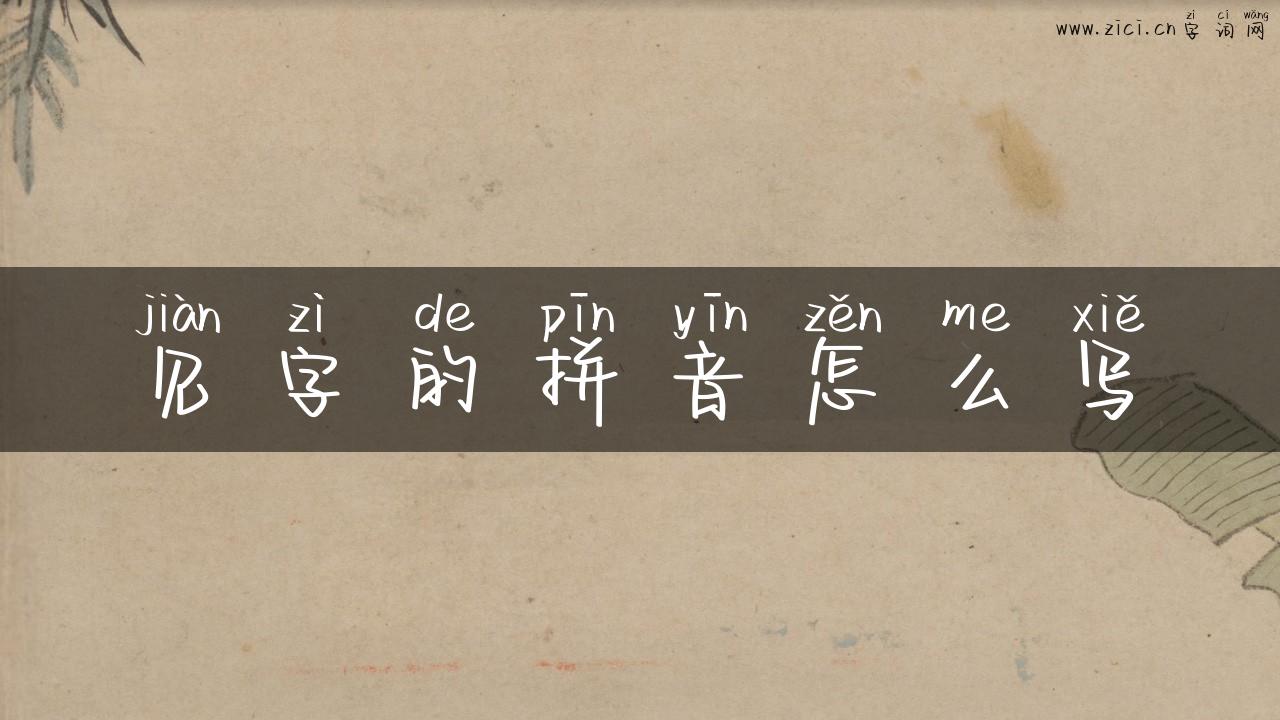 zì cí wǎng
www.zici.cn 字词网
jiàn zì de pīn yīn zěn me xiě
见字的拼音怎么写